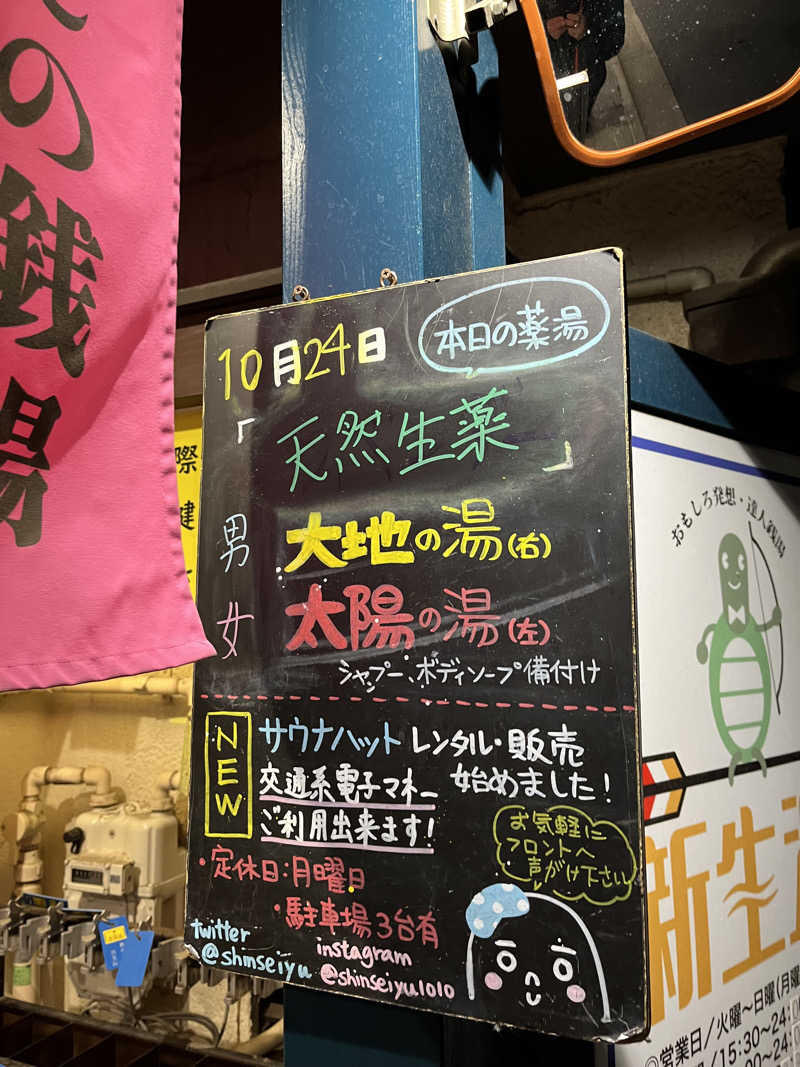 の銭湯
際
健
10月24日
本日の薬湯
「天然生薬」
男 大地の湯(右)
女 太陽の湯(左)
シャプー、ボディソープ備付け
NEW
サウナハット レンタル・販売
始めました!
交通系電子マネー
ご利用出来ます!
お気軽に
フロントへ
声がけ下さい
・定休日:月曜日
・駐車場3台有
twitter
@shinseiyu
instagram
@shinseiyu1010
おもしろ発想・達人銭湯
新生
◎営業日/火曜~日曜(月曜
/15:30~24:0